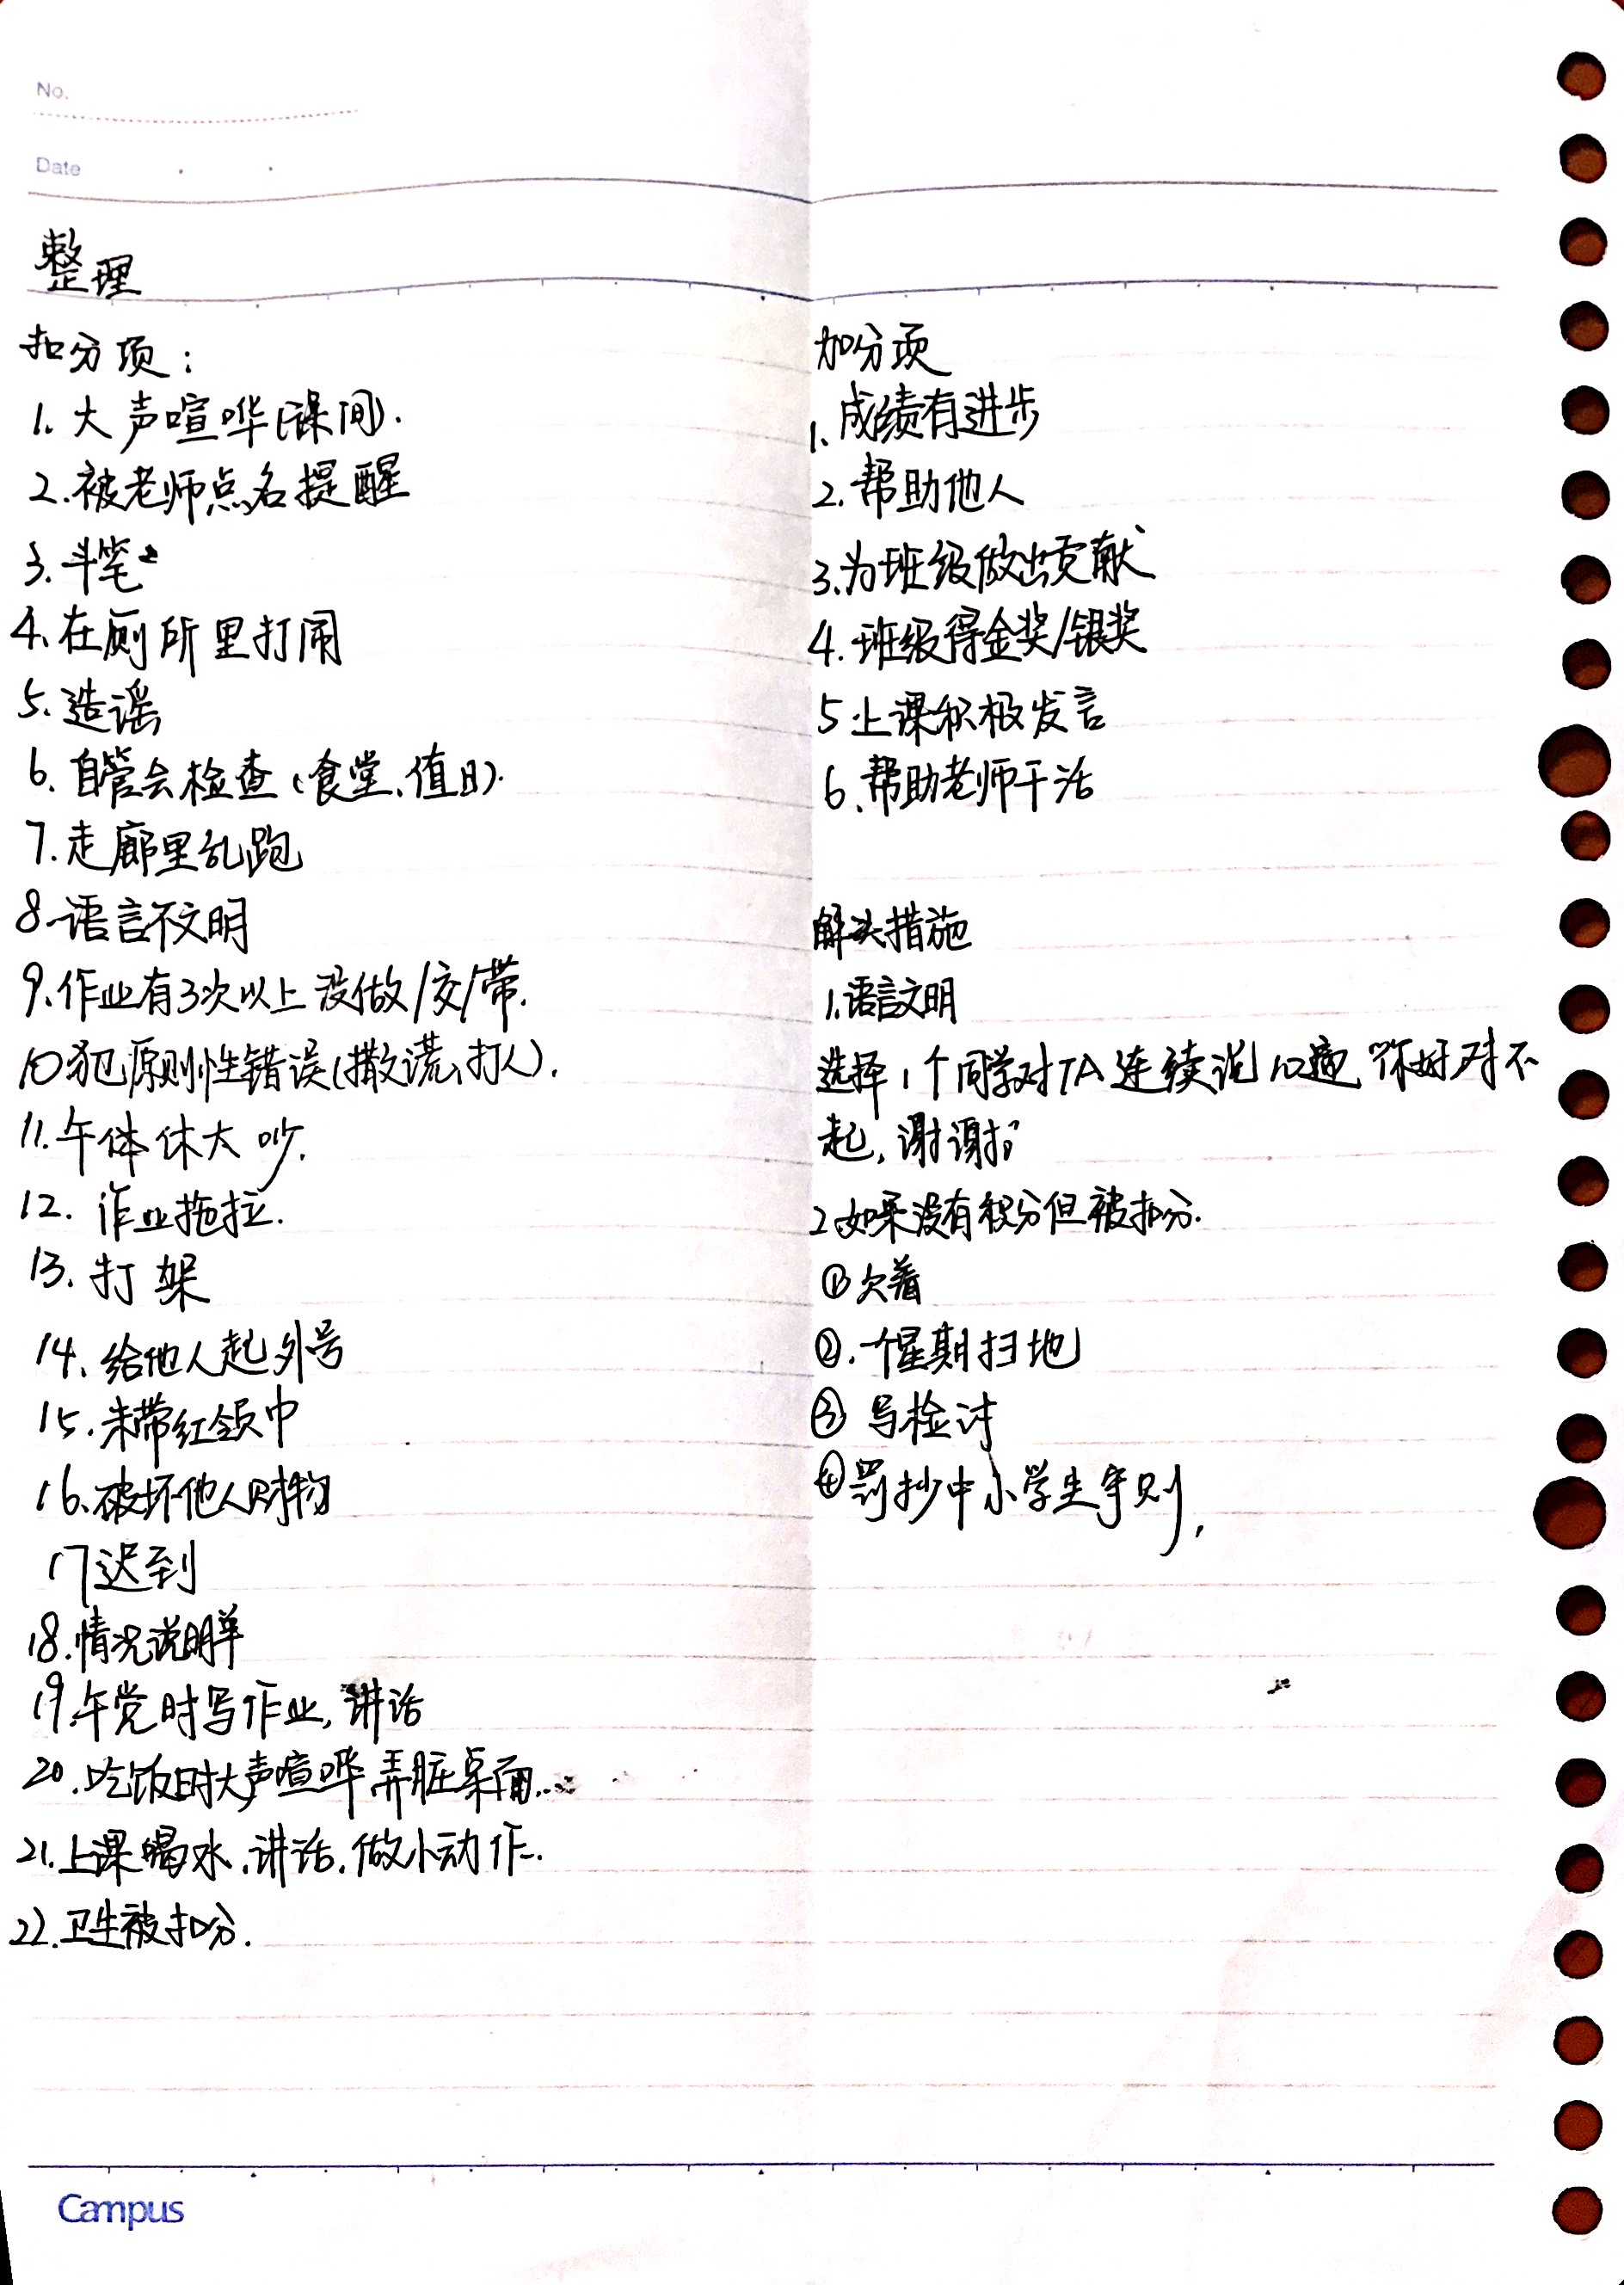 No.
Date
整理
扣分项：
1. 大声喧哗(课间).
2.被老师点名提醒
3.斗笔
4、在厕所里打闹
5、造谣
6、自管会检查(食堂、值日).
7.走廊里乱跑
8.语言不文明
9、作业有3次以上没做/交/带.
10犯原则性错误(撒谎、打人).
11.午体休太吵.
12. 作业拖拉.
13、打架
14、给他人起外号
15.未带红领巾
16、破坏他人财物
17迟到
18.情况说明单
19.午觉时写作业,讲话
20.吃饭时大声喧哗弄脏桌面...
21.上课喝水.讲话.做小动作.
22.卫生被扣分.
加分项
1、成绩有进步
2.帮助他人
3.为班级做出贡献
4.班级得金奖/银奖
5.上课积极发言
6、帮助老师干活
解决措施
1.语言文明
选择1个同学对TA连续说10遍"你好对不
起,谢谢"
2如果没有积分但被扣分.
①欠着
②.一个星期扫地
③写检讨
④罚抄中小学生守则,
Campus